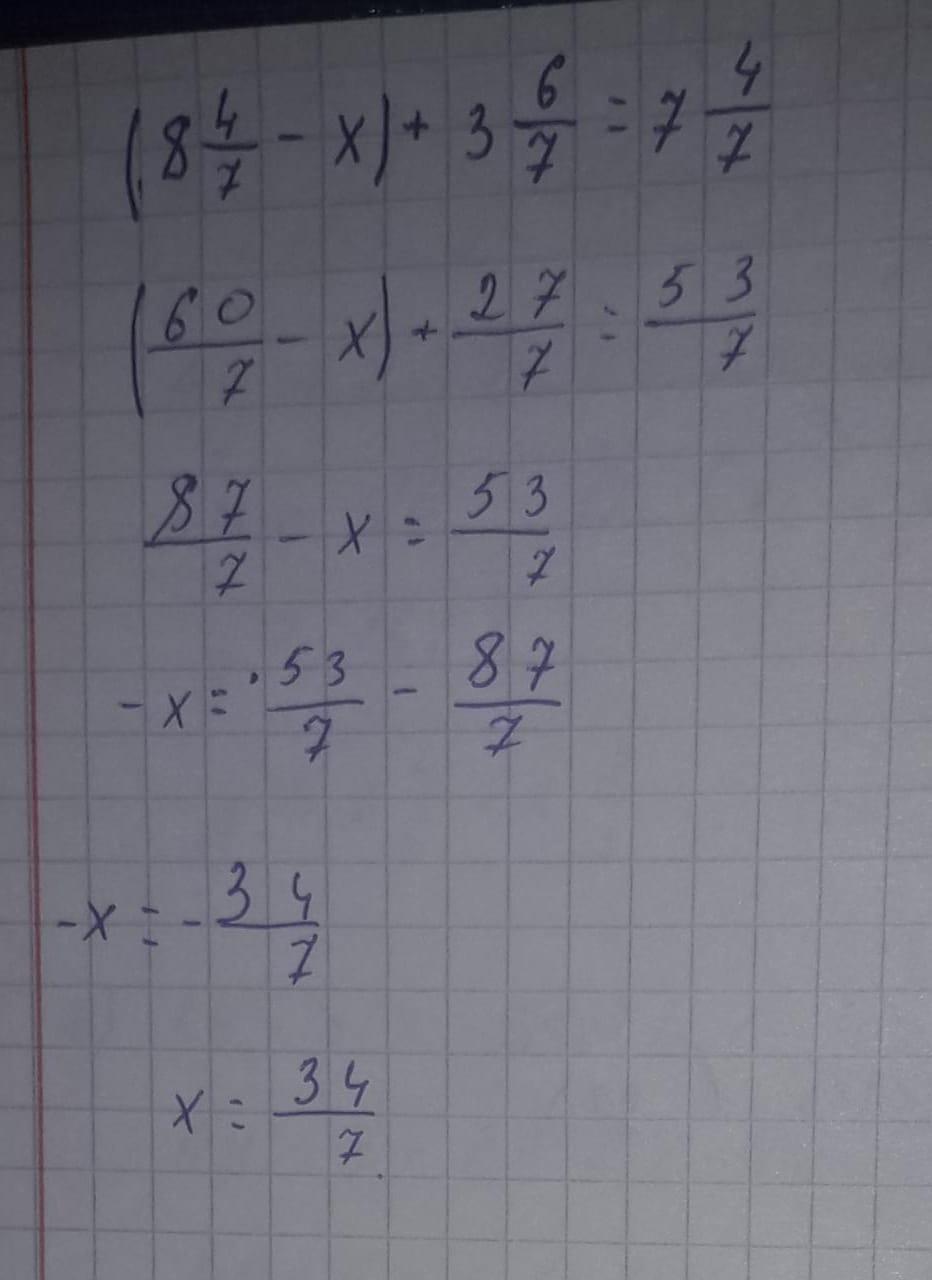 (8 4/7 - x) + 3 6/7 = 7 4/7
(60/7 - x) + 27/7 = 53/7
87/7 - x = 53/7
-x = 53/7 - 87/7
-x = -34/7
x = 34/7